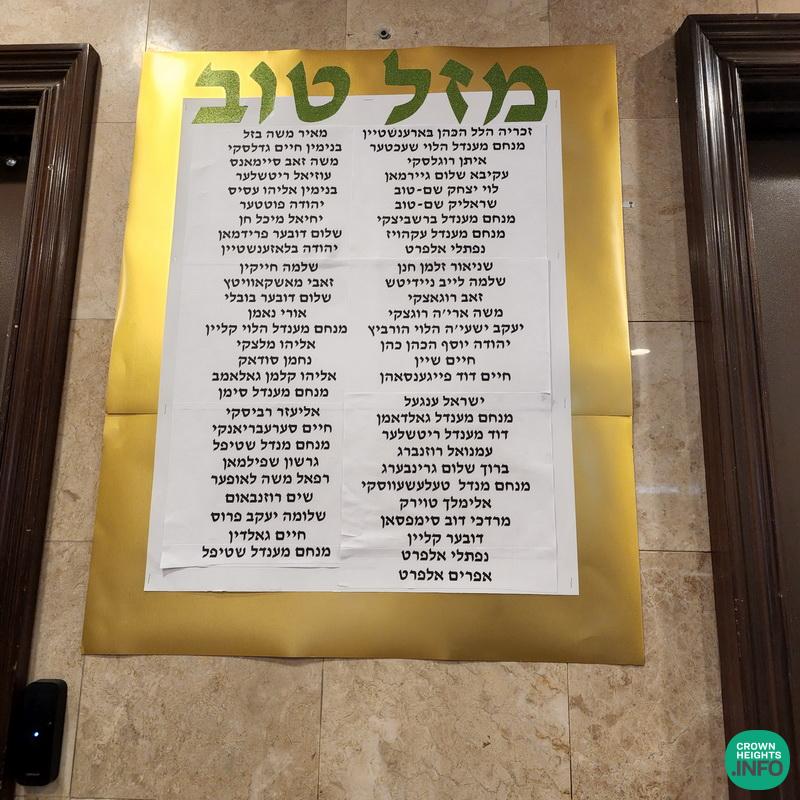 מזל טוב
זכריה הלל הכהן בארענשטיין
מנחם מענדל הלוי שעכטער
איתן רוגלסקי
עקיבא שלום גיירמאן
לוי יצחק שם-טוב
שראליק שם-טוב
מנחם מענדל ברשביצקי
מנחם מענדל עקהויז
נפתלי אלפרט
שניאור זלמן חנן
שלמה לייב ניידיטש
זאב רוגאצקי
משה ארי׳ה רוגצקי
יעקב ישעי׳ה הלוי הורביץ
יהודה יוסף הכהן כהן
חיים שיין
חיים דוד פייגענסאהן
ישראל ענגעל
מנחם מענדל גאלדאמן
דוד מענדל ריטשלער
עמנואל רוזנברג
ברוך שלום גרינבערג
מנחם מנדל טעלעשעווסקי
אלימלך טווירק
מרדכי דוב סימפסאן
דובער קליין
נפתלי אלפרט
אפרים אלפרט
מאיר משה בזל
בנימין חיים גדלסקי
משה זאב סיימאנס
עוזיאל ריטשלער
בנימין אליהו עסיס
יהודה פוטטער
יחיאל מיכל חן
שלום דובער פרידמאן
יהודה בלאזענשטיין
שלמה חייקין
זאבי מאשקאוויטץ
שלום דובער בובלי
אורי נאמן
מנחם מענדל הלוי קליין
אליהו מלצקי
נחמן סודאק
אליהו קלמן גאלאמב
מנחם מענדל סימן
אליעזר רביסקי
חיים סערעבריאנקי
מנחם מנדל שטיפל
גרשון שפילמאן
רפאל משה לאופער
שים רוזנבאום
שלומה יעקב פרוס
חיים גאלדין
מנחם מענדל שטיפל
CROWN
HEIGHTS
.INFO